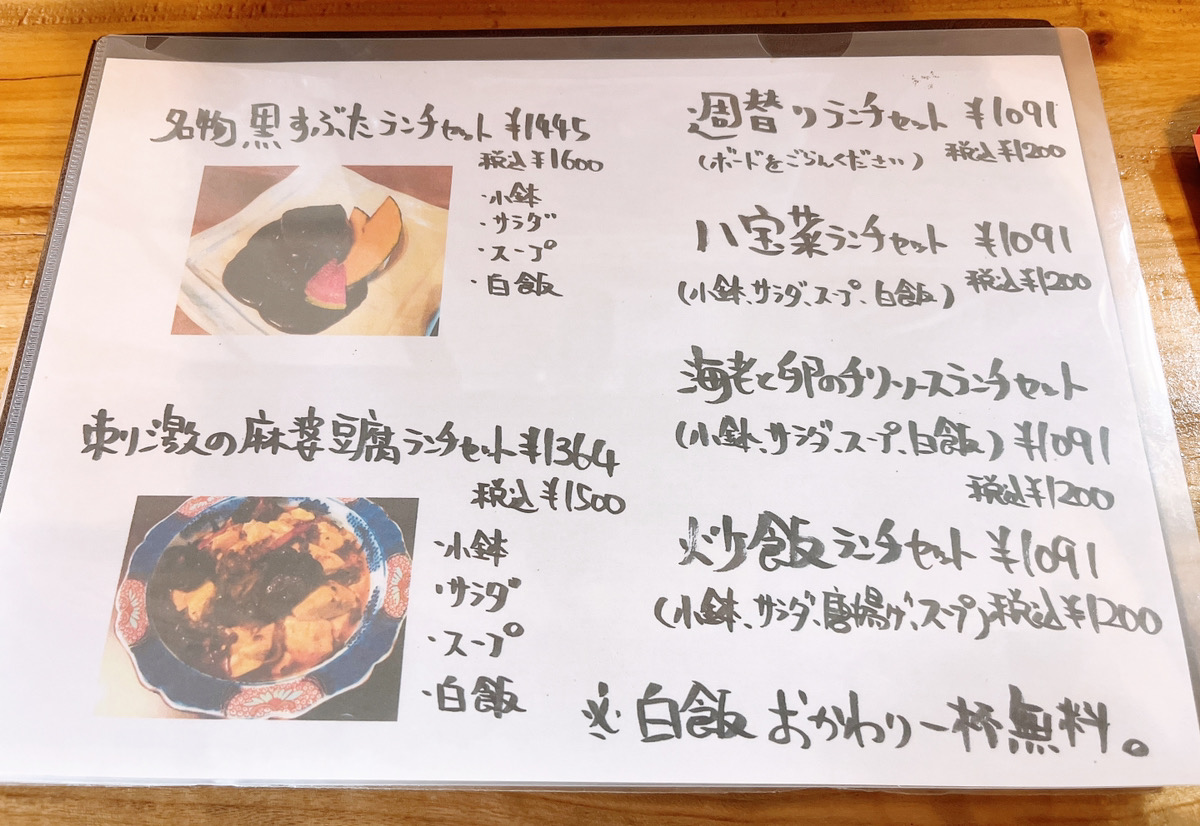 名物黒すぶたランチセット ¥1445
税込¥1600
・小鉢
・サラダ
・スープ
・白飯
刺激の麻婆豆腐ランチセット¥1364
税込¥1500
・小鉢
・サラダ
・スープ
・白飯
週替りランチセット ¥1091
(ボードをごらんください) 税込¥1200
八宝菜ランチセット ¥1091
(小鉢、サラダ、スープ、白飯) 税込¥1200
海老と卵のチリソースランチセット
(小鉢、サラダ、スープ、白飯) ¥1091
税込¥1200
炒飯ランチセット ¥1091
(小鉢、サラダ、唐揚げ、スープ)税込¥1200
※白飯おかわり一杯無料。